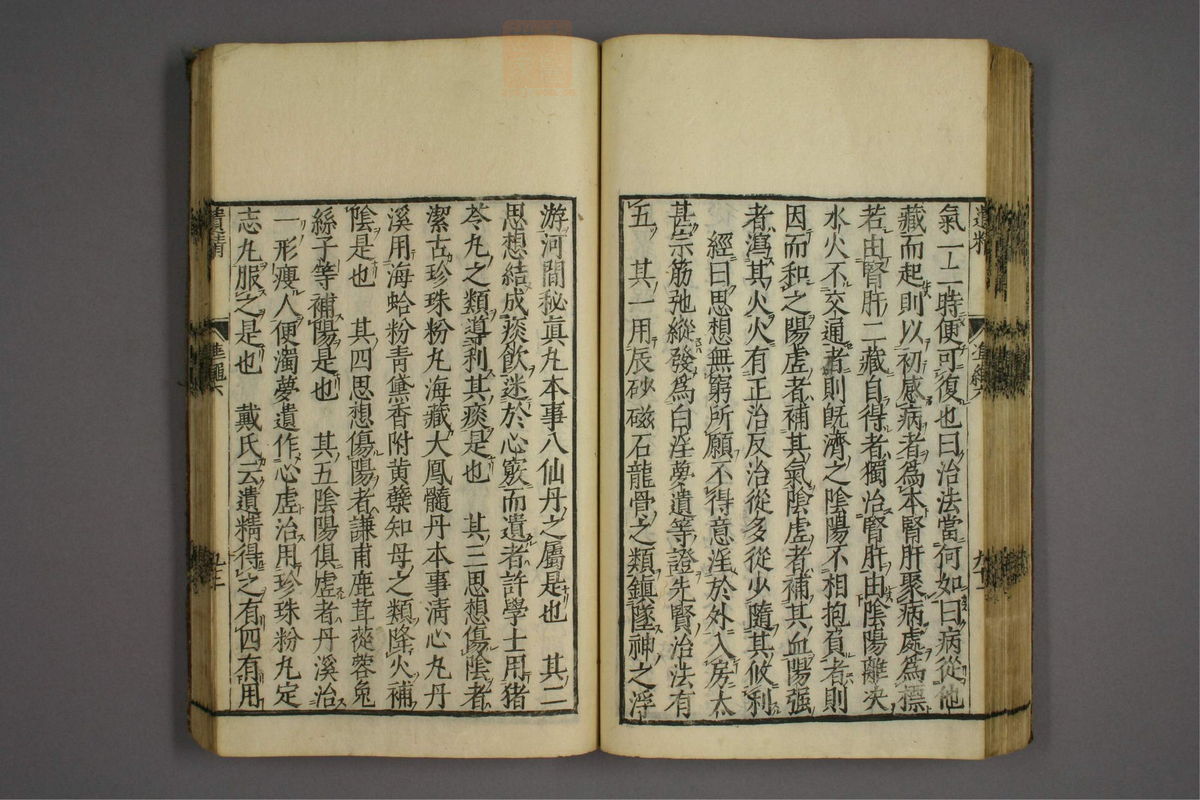 氣一二時便可復也曰治法當何如曰病從他
藏而起則以初感病者爲本腎肝聚病處爲標
若由腎肝二藏自得者獨治腎肝由陰陽離决
水火不交通者則旣濟之陰陽不相抱負者則
因而和之陽虚者補其氣陰虚者補其血陽强
者瀉其火火有正治反治從多從少隨其攸利
經曰思想無窮所願不得意淫於外入房太
甚宗筋弛縱發爲白淫夢遺等證先賢治法有
五 其一用辰砂磁石龍骨之類鎮墜神之浮
游河間秘眞丸本事八仙丹之屬是也 其二
思想結成痰飲迷於心竅而遺者許學士用猪
苓丸之類導利其痰是也 其三思想傷陰者
潔古珍珠粉丸海藏大鳳髓丹本事淸心丸丹
溪用海蛤粉靑黛香附黄蘗知母之類降火補
陰是也 其四思想傷陽者謙甫鹿茸蓯蓉兔
絲子等補陽是也 其五陰陽俱虚者丹溪治
一形瘦人便濁夢遺作心虚治用珍珠粉丸定
志丸服之是也 戴氏云遺精得之有四有用
遺精 準繩六 九十二